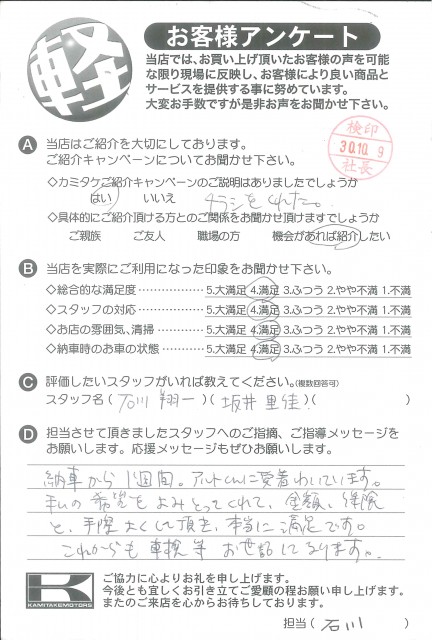 軽
お客様アンケート
当店では、お買い上げ頂いたお客様の声を可能
な限り現場に反映し、お客様により良い商品と
サービスを提供する事に努めています。
大変お手数ですが是非お声をお聞かせ下さい。
検印
30.10.9
社長
A 当店はご紹介を大切にしております。
ご紹介キャンペーンについてお聞かせ下さい。
◇カミタケご紹介キャンペーンのご説明はありましたでしょうか
はい いいえ チラシをくれた。
◇具体的にご紹介頂ける方とのご関係をお聞かせ頂けますでしょうか
ご親族 ご友人 職場の方 機会があれば紹介したい
B 当店を実際にご利用になった印象をお聞かせ下さい。
◇総合的な満足度 5.大満足 4.満足 3.ふつう 2.やや不満 1.不満
◇スタッフの対応 5.大満足 4.満足 3.ふつう 2.やや不満 1.不満
◇お店の雰囲気、清掃 5.大満足 4.満足 3.ふつう 2.やや不満 1.不満
◇納車時のお車の状態 5.大満足 4.満足 3.ふつう 2.やや不満 1.不満
C 評価したいスタッフがいれば教えてください。(複数回答可)
スタッフ名(石川 翔一)(坂井 里佳)( )
D 担当させて頂きましたスタッフへのご指摘、ご指導メッセージを
お願いします。応援メッセージもぜひお願いします。
納車から1週間。アルトくんに愛着わいています。
私の希望をよみとってくれて、金額、保険
と、手際よくして頂き、本当に満足です。
これからも車検等お世話になります。
K
KAMITAKEMOTORS
ご協力に心よりお礼を申し上げます。
今後とも宜しくお引き立てご愛顧の程お願い申し上げます。
またのご来店を心からお待ちしております。
担当(石川)